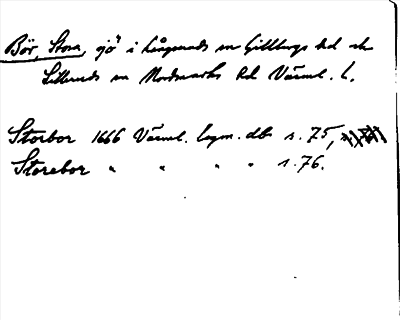 Bör, Stora, sjö i Långseruds sn Gillbergs hd o
Silleruds sn Nordmarks hd Värml. l.
Storbor 1666 Värml. lagm. db s. 75,
Storebor " " " " s. 76.